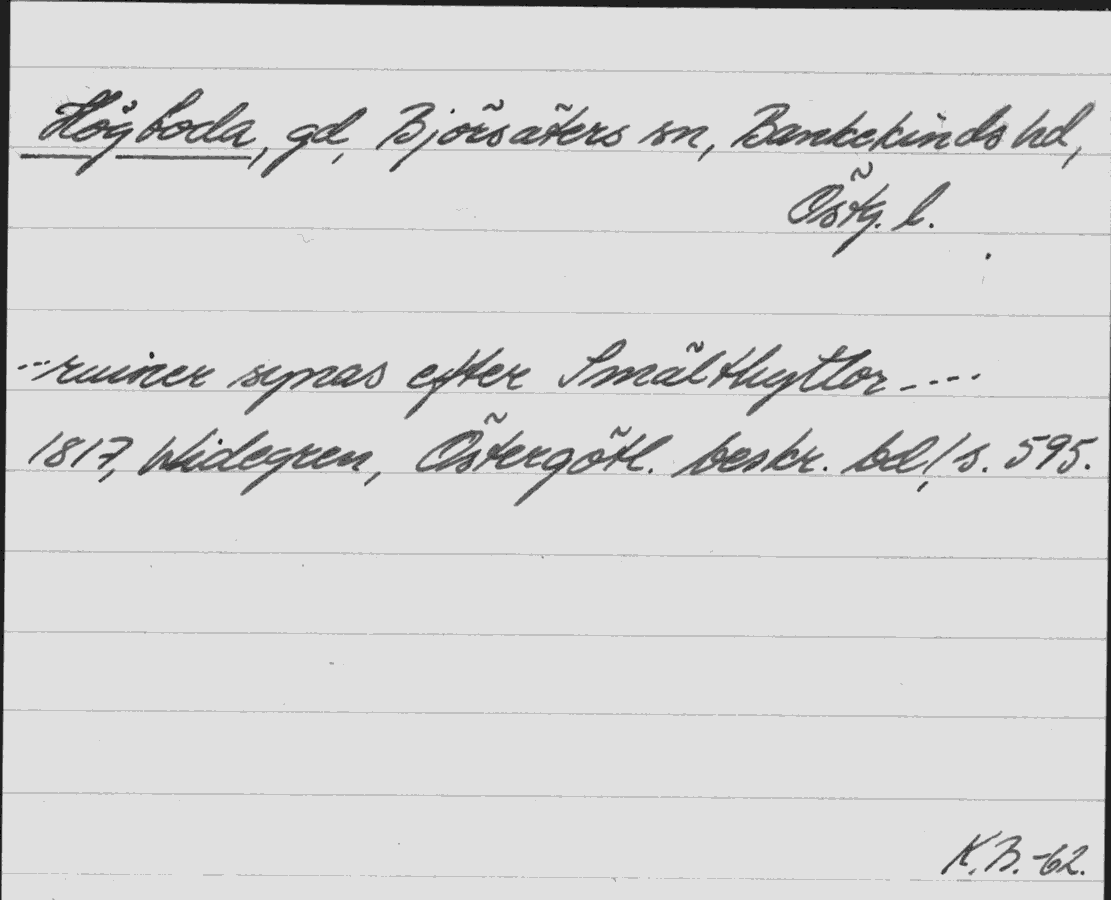 Högboda, gd, Björsäters sn, Bankekinds hd,
Östg. l.
--- ruiner synas efter Smälthyttor ----
1817, Widegren, Östergötl. beskr. bd 1, s. 595.
K.B. -62.